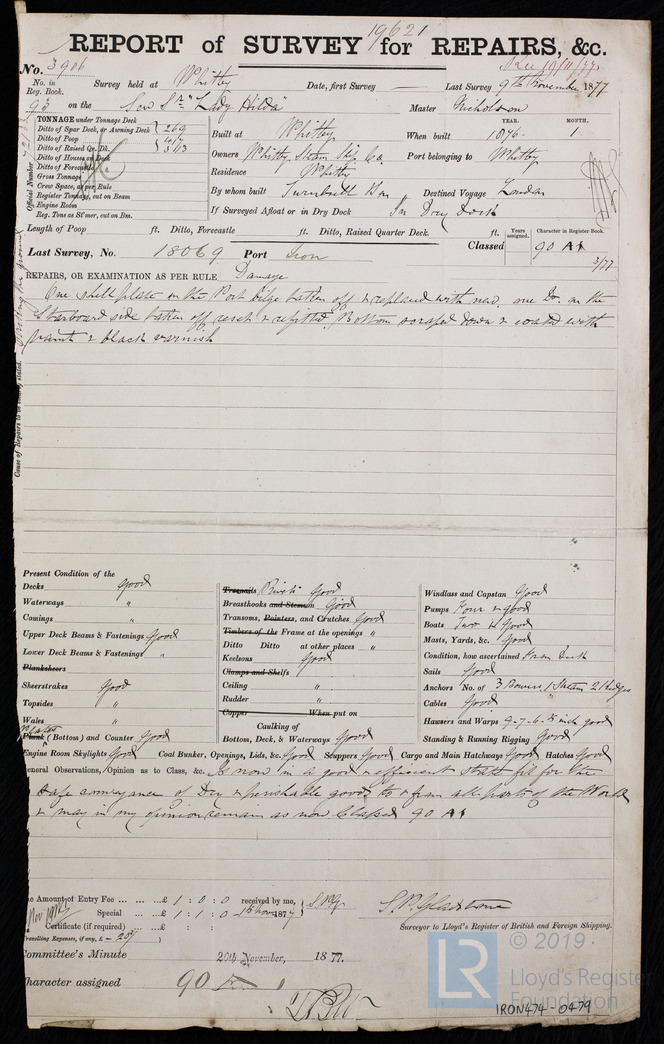 19621
REPORT of SURVEY for REPAIRS, &c.
No. 3906
Rec 19/11/77
No. in Reg. Book. Survey held at Whitby Date, first Survey — Last Survey 9th November 1877
93 on the Screw Sr. "Lady Hilda" Master Nicholson
TONNAGE under Tonnage Deck
Ditto of Spar Deck, or Awning Deck 269
Ditto of Poop
Ditto of Raised Qr. Dk.
Ditto of Houses on Deck
Ditto of Forecastle
Gross Tonnage
Crew Space, as per Rule
Register Tonnage, cut on Beam
Engine Room
Reg. Tons as St'mer, cut on Bm.
Official Number
YEAR. MONTH.
Built at Whitby When built 1876 1
Owners Whitby Steam Ship Co. Port belonging to Whitby
Residence Whitby
By whom built Turnbull & Son Destined Voyage London
If Surveyed Afloat or in Dry Dock In Dry Dock
Length of Poop ft. Ditto, Forecastle ft. Ditto, Raised Quarter Deck. ft.
Classed Years assigned. Character in Register Book. 90 A1
3/77
Last Survey, No. 18069 Port Iron
REPAIRS, OR EXAMINATION AS PER RULE Damage
One shell plate on the Port bilge taken off & replaced with new, one Do. on the
Starboard side taken off reset & refitted. Bottom scraped down & coated with
paint & black varnish
Cause of Repairs to be clearly stated.
the ground
Present Condition of the
Decks Good
Waterways "
Comings "
Upper Deck Beams & Fastenings Good
Lower Deck Beams & Fastenings "
Planksheers
Sheerstrakes Good
Topsides "
Wales "
Plates
Plank (Bottom) and Counter Good
Treenails Rivets Good
Breasthooks and Stemson Good
Transoms, Pointers, and Crutches Good
Timbers of the Frame at the openings "
Ditto Ditto at other places "
Keelsons Good
Clamps and Shelfs
Ceiling "
Rudder "
Copper When put on
Caulking of
Bottom, Deck, & Waterways Good
Windlass and Capstan Good
Pumps Four & good
Boats Two & Good
Masts, Yards, &c. Good
Condition, how ascertained From Deck
Sails Good
Anchors No. of 3 Bowers, 1 Stream 2 Kedges
Cables Good
Hawsers and Warps 9-7-6-5 inch good
Standing & Running Rigging Good
Engine Room Skylights Good Coal Bunker, Openings, Lids, &c. Good Scuppers Good Cargo and Main Hatchways Good Hatches Good
General Observations, Opinion as to Class, &c. Is now in a good & efficient state fit for the
Safe conveyance of Dry & perishable goods to & from all parts of the World
& may in my opinion remain as now Classed 90 A1
The Amount of Entry Fee ... ... £ 1 : 0 : 0 received by me,
Special ... ... £ 1 : 1 : 0 1877
Certificate (if required) ... £ : :
Travelling Expenses, if any, £
S.P. Gladstone
Surveyor to Lloyd's Register of British and Foreign Shipping.
Committee's Minute 20th November, 1877.
Character assigned 90
LR © 2019
Lloyd's Register
Foundation
IRON474-0479